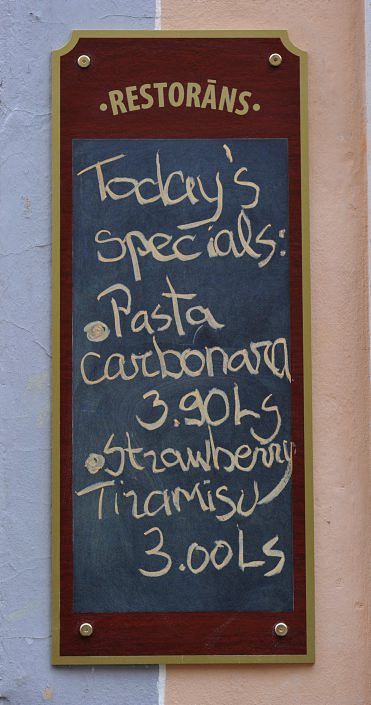 ·RESTORĀNS·
Today's
specials:
• Pasta
carbonara
3.90Ls
• Strawberry
Tiramisu
3.00Ls